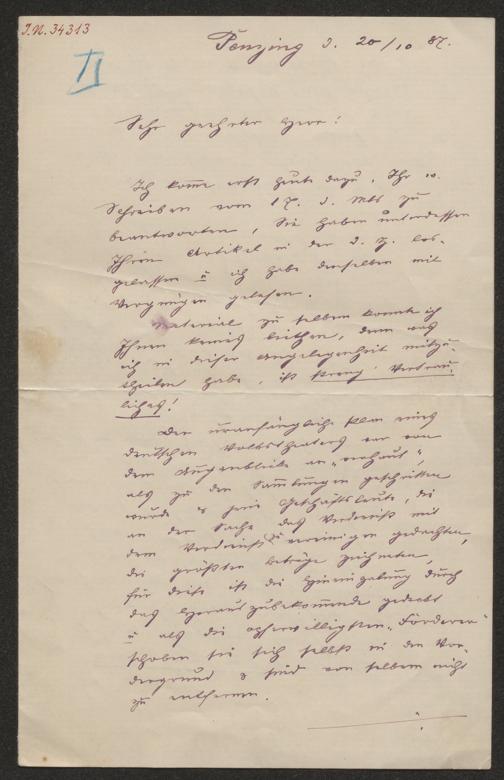 J.N. 34313
II
Penzing d. 20/10 87.
Sehr geehrter Herr!
Ich komme erst heute dazu, Ihr w.
Schreiben vom 17. d. Mts zu
beantworten, Sie haben unterdessen
Ihren Artikel in der D. Z. los-
gelassen u ich habe denselben mit
Vergnügen gelesen.
Material zu selbem konnte ich
Ihnen keines leihen, denn was
ich in dieser Angelegenheit mitzu-
theilen habe, ist streng Vertrau-
liches!
Der uranfängliche Plan eines
deutschen Volkstheaters war von
dem Augenblicke an „verhaut",
als zu den Sammlungen geschritten
wurde & jene Geschäftsleute, die
an der Sache das Verdienst mit
dem Verdienst zu vereinigen gedachten,
die größten Beträge zeichneten,
für diese ist die Hineingabe durch
das Herauszubekommende gedeckt
u als die opferwilligsten „Förderer"
schoben sie sich selbst in den Vor-
dergrund & sind von selbem nicht
zu entfernen.